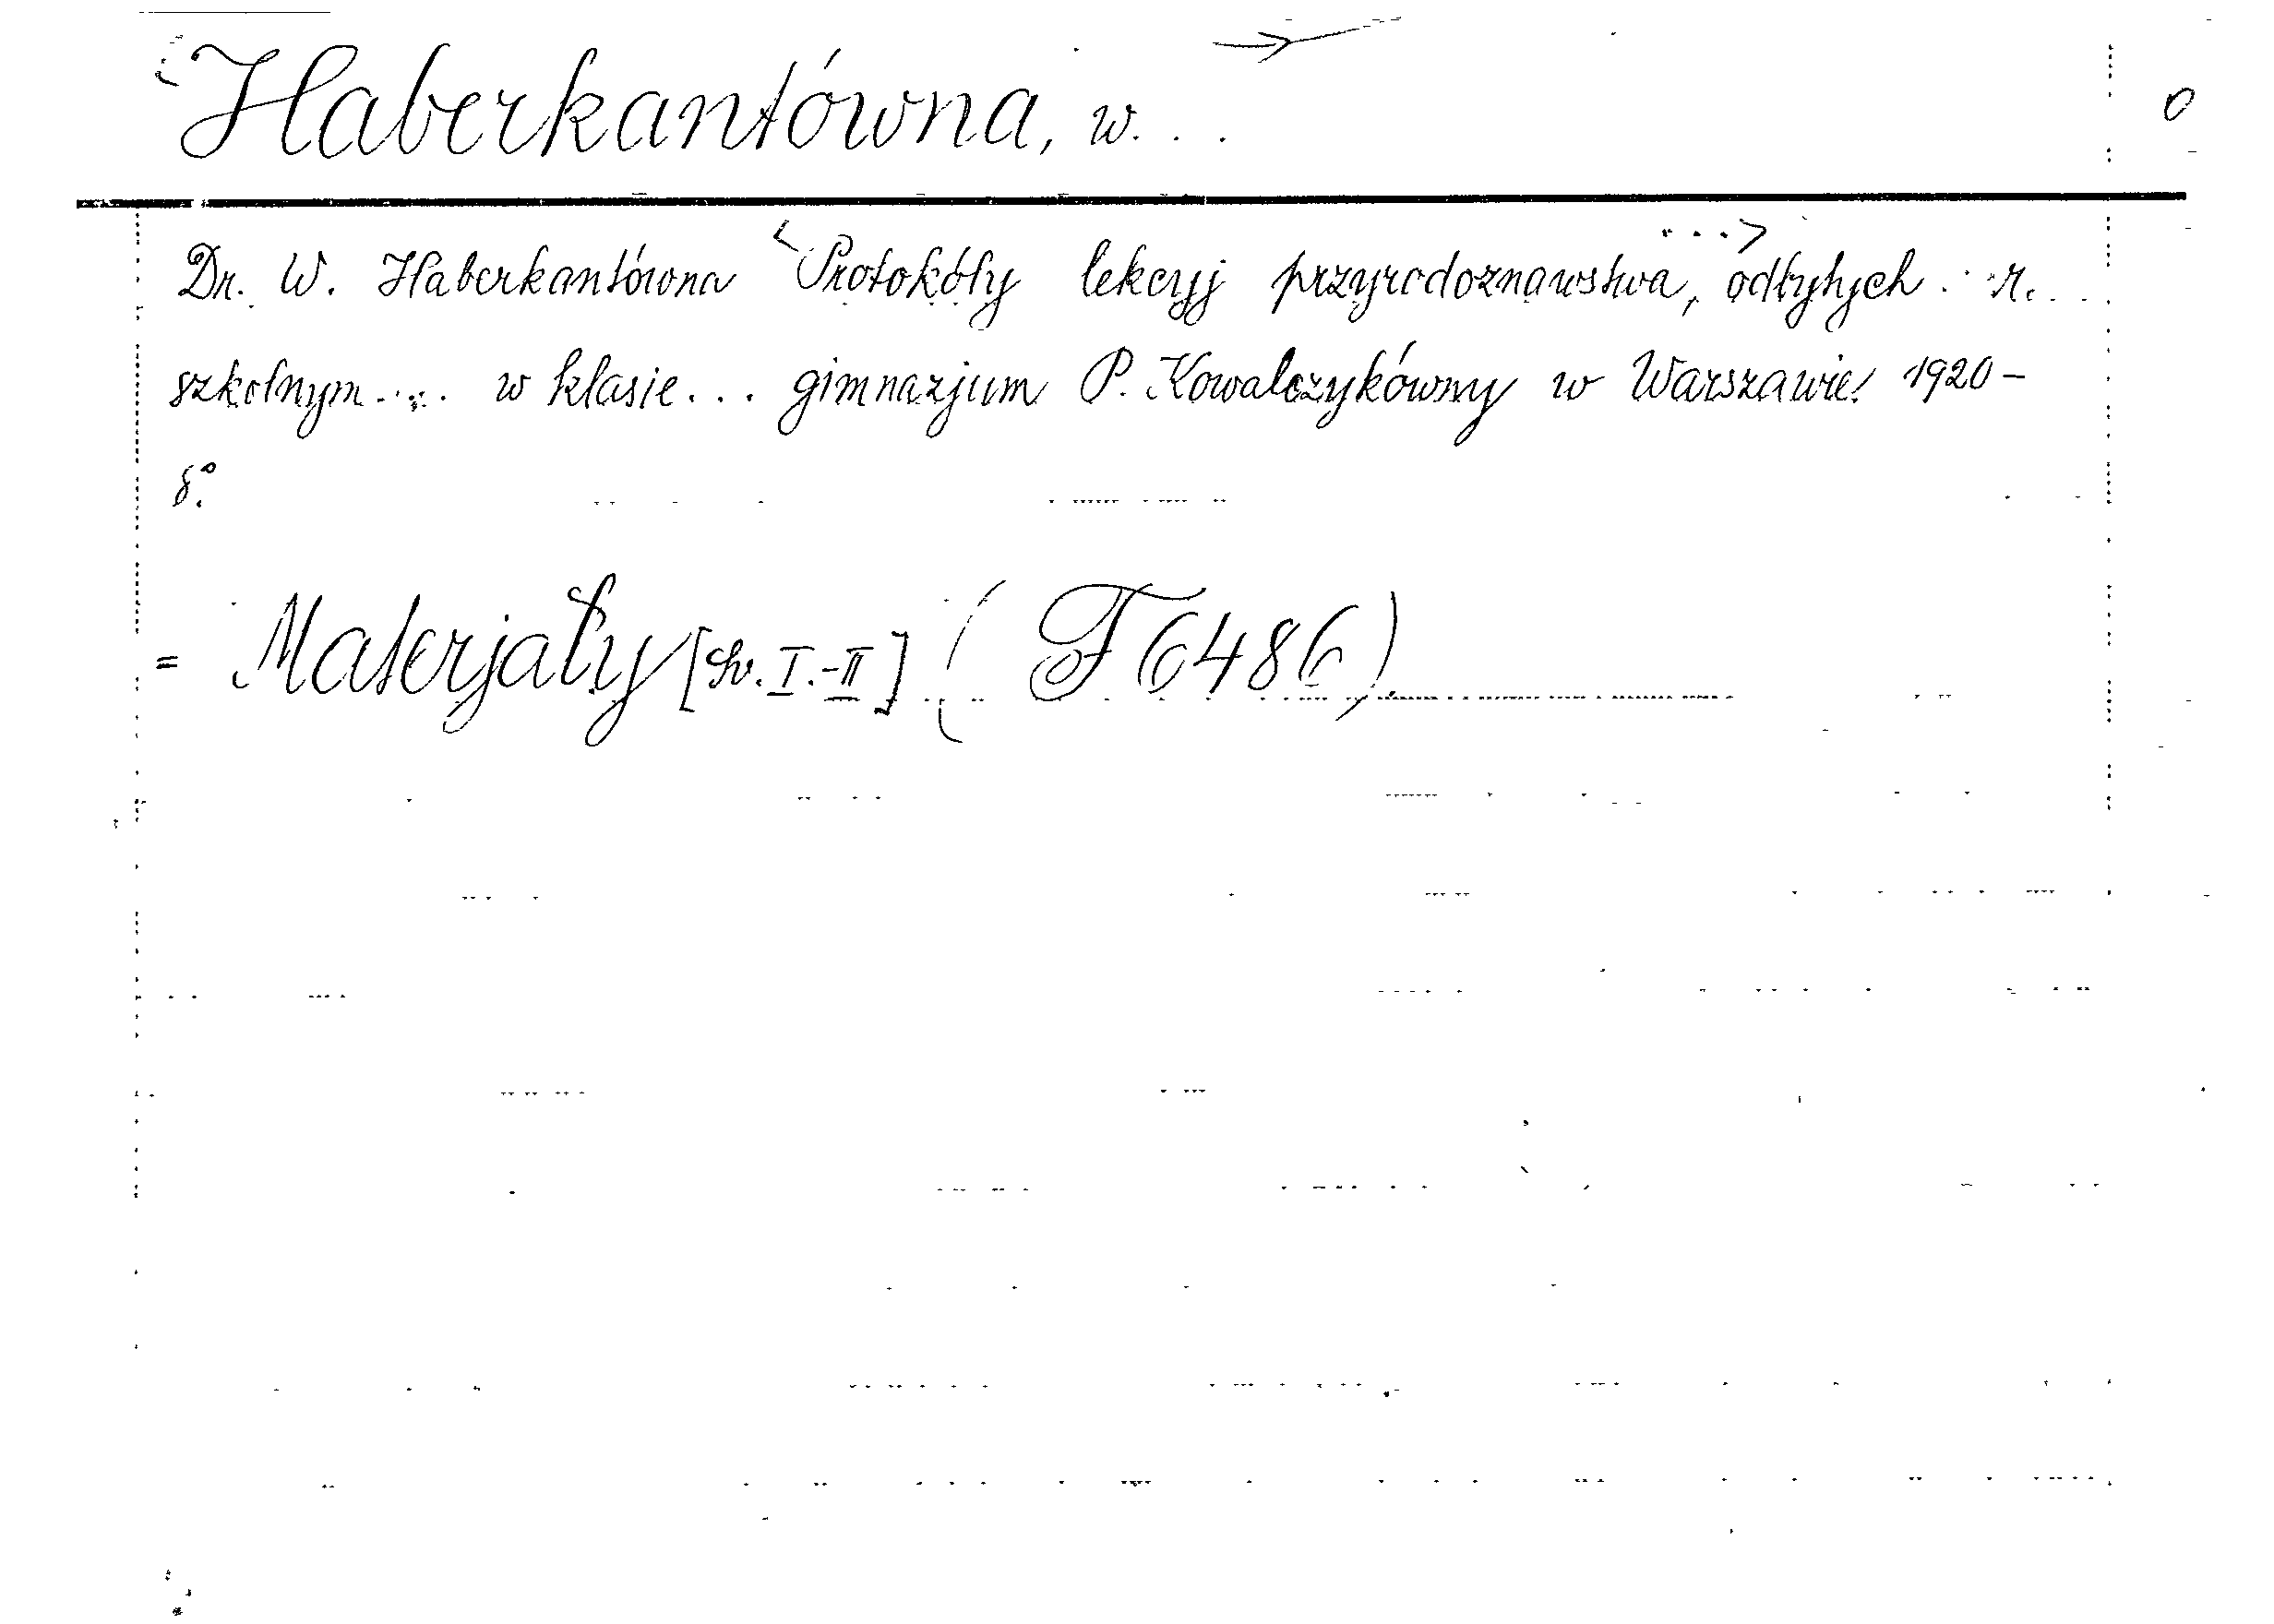 Haberkantówna, W. . .
0
Dr. W. Haberkantówna <Protokóły lekcyj przyrodoznawstwa, ...> odbytych . . r. . .
szkolnym .... w klasie... gimnazjum P. Kowalczykówny w Warszawie! 1920 -
8°.
= Materjały [Sv. I.-II] (T 6486)